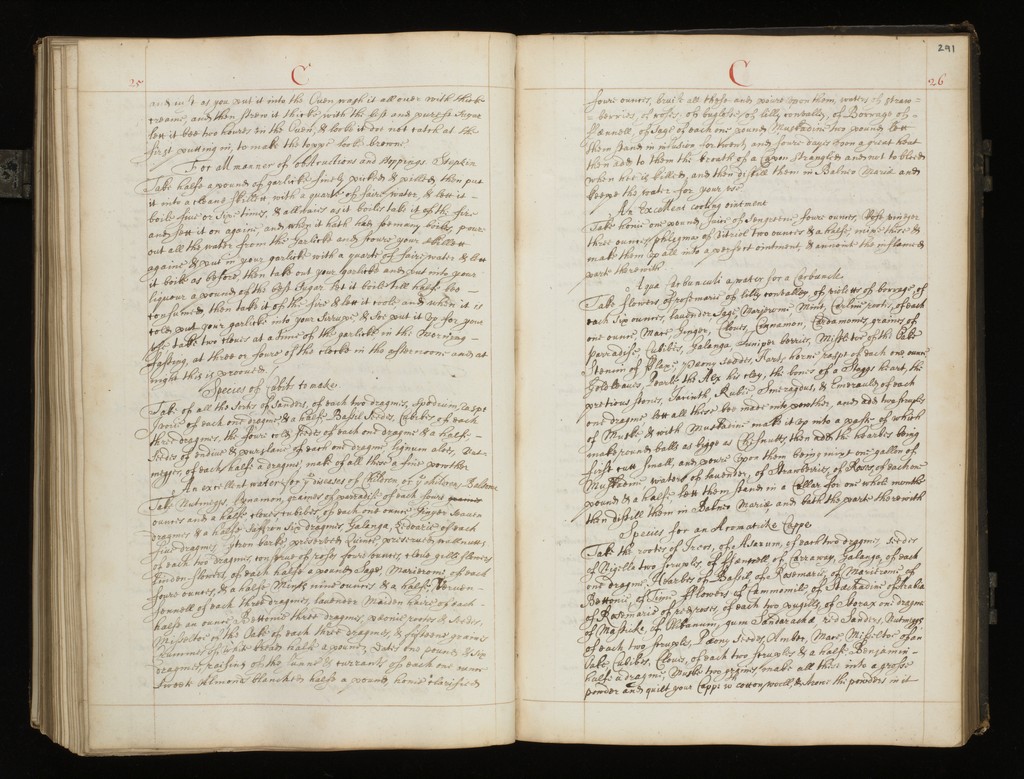 25
C
and iust as you put it into the Oven, wash it all over with thick
creame, and then strew it thicke with the best and purest Sugar
lett it bee two hours in the Oven, & looke it doe not catch at the
first putting in, to make the topps look browne
For all manner of obstructions and stoppings. Stepkin
Take halfe a pound of garlicke finely picked & pilled, then put
it into a cleane skillett with a quarte of faire water, & lett it
boile five or Six times, & allwaies as it boiles take it of the fire
and sett it on againe, and when it hath had soe many boiles, pour
out all the water from the Garlicke and scoure your skillett
againe & put in your garlicke with a quarte of faire water & lett
it boile as before, then take out your garlicke and put into your
liquour a pound of the best Sugar let it boile till halfe be con=
sumed, then take it of the fire & lett it coole and when it is
cold put your garlicke into your Sirrupe, & Soe put it up for your
use take two cloves at a time of the garlicke in the morning
fasting, at three or foure of the clocke in the afternoone and at
night this is prooved
Species of Cubibs to make
Take of all the Sorts of Sanders, of each two dragms, Spodium,
of each one dragme & a halfe Basill Seedes, Cubibs of each
three dragms, the foure cold Seedes of each one dragme & a halfe
Seedes of endive & purslane of each one dragme lignum aloes, Nut=
meggs, of each halfe a dragme, make of all these a fine powther
An excellent water for ye diseases of
Take Nutmeggs Cynamon, graines of paradise of each foure
ounces and a halfe cloves cubibes of each one ounce Ginger Seaven
dragms & a halfe Saffron Six dragms, Galanga, Zedoarie of each
five dragms, Cytron barke preserved, Quince preserved
of each two dragms, conserve of roses foure ounces, clove gelly flowers
Linden flowers of each halfe a pound, Sage, Marierome of each
foure ounces, & a halfe, Mints nine ounces & a halfe,
fennell of each three dragms, lavender Maiden haire of each
halfe an ounce Bettonie three dragms, peonie rootes & Seedes
Misseltoe on the Oake of each three dragms, & fifteene graines
Crummes of white bread halfe a pound, dates one pound & Six
dragms, raisins of the Sunne & currants of each one ounce
Sweete Almonds blanched halfe a pound, honie clarified
291
C
26
foure ounces, bruise all these and poure upon them, waters of straw=
berries, of roses, of buglosse of lilly convally, of Borrage of
Fennell, of Sage of each one pound, Muskadine two pounds lett
them stand in infusion for twenty and foure dayes upon a great heat
then add to them the breath of a Capon strangled and not to bleed
when hee is killed, and then distill them in Balneo Mariae and
keepe the water for your use
An Excellent cooling ointment
Take honie one pound, Juice of Sengreene foure ounces, Rose vineger
three ounces, phlegmae of Vitriol two ounces & a halfe, mixe these &
make them up all into a perfect ointment, & annoint the inflamed
parte therewith
Aqua Carbunculi a water for a Carbuncle
Take flowers of rosemarie of lilly convalley of violetts of borrage of
each Six ounces, lavender Sage Marjerom Mint, Carline rootes, of each
one ounce, Mace Ginger, Cloves, Cynamon, Cardamomes, graines of
parradise Cubibes, Galanga, Juniper berries, Misseltoe of the Oake
Stemm of Flax, pPaony Seedes, Hart, horne raspt of each one ounce
gold leaves, Pearls, the Alex his clay, the bones of a Staggs heart, the
pretious stones, Jacinth, Rubie, Smeragdus, & Emerauds of each
one dragme lett all these bee made into powther, and add two scruples
of Muske, & with Muskadine make it up into a paste of which
make round balls as bigg as Chestnutts then add the hearbes being
first cutt small, and poure upon them being mixt one gallon of
Muskadine, waters of lavender, of Strawberries, of Roses, of each one
pound & a halfe lett them stand in a Cellar for one whole month
then distill them in Balneo Mariae, and bath the parte therewith
Species for an Aromaticke Cappe
Take the rootes of Ireos, of Asarum, of each two dragms Seedes
of Nigella two scruples, of Fennell of Carraway, Galanga, of each
one dragm, Hearbes of Bassil, of Rosemarie, of Marierome of
Bettonie, of Time Flowers of Cammomile, of Stechadine of Arabia
of Rosemarie of redroses, of each two pugills, of Storax one dragme
of Mastiche, of Olibanum, gum Sandaracha red Sanders, Nutmeggs
of each two scruples, Paony Seedes, Amber, Mace Misseltoe of an
Oake, Cubibes, Cloves, of each two scruples & a halfe Benjamin
halfe a dragm, Muske two graines make all these into a grosse
powder and quilt your Capps wth cotten wooll & strew the powders in it